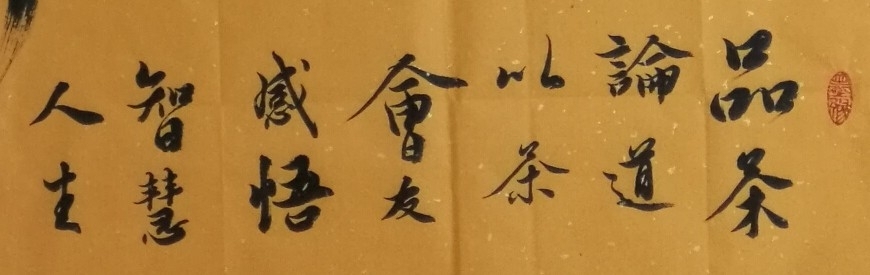 品茶
論道
以茶
會友
感悟
智慧
人生